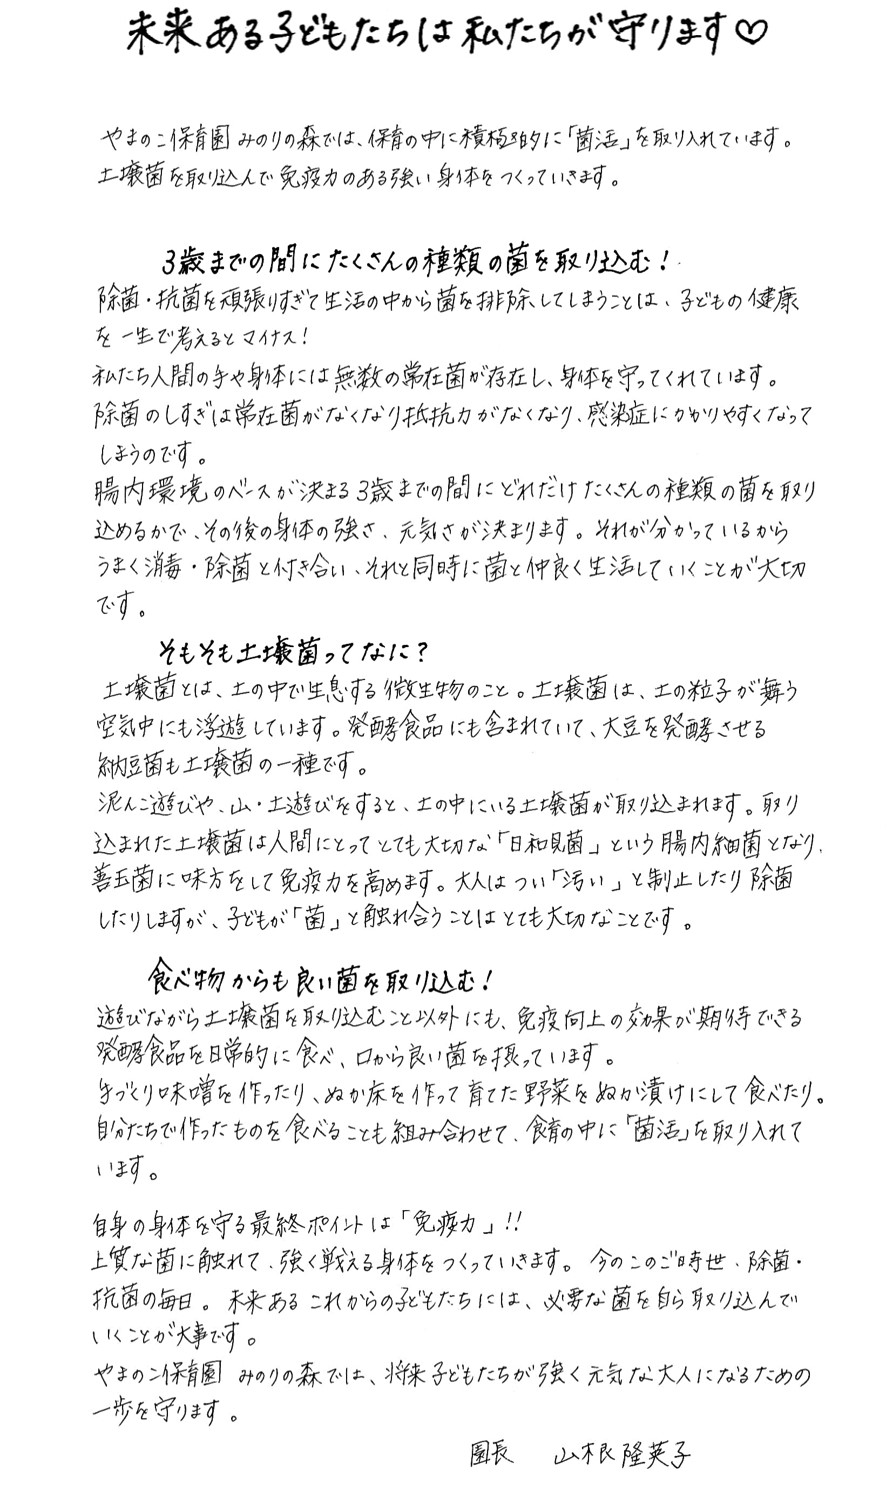 未来ある子どもたちは私たちが守ります♡
やまのこ保育園 みのりの森では、保育の中に積極的に「菌活」を取り入れています。
土壌菌を取り込んで免疫力のある強い身体をつくっていきます。
3歳までの間にたくさんの種類の菌を取り込む!
除菌・抗菌を頑張りすぎて生活の中から菌を排除してしまうことは、子どもの健康
を一生で考えるとマイナス!
私たち人間の手や身体には無数の常在菌が存在し、身体を守ってくれています。
除菌のしすぎは常在菌がなくなり抵抗力がなくなり、感染症にかかりやすくなって
しまうのです。
腸内環境のベースが決まる3歳までの間にどれだけたくさんの種類の菌を取り
込めるかで、その後の身体の強さ、元気さが決まります。それが分かっているから
うまく消毒・除菌と付き合い、それと同時に菌と仲良く生活していくことが大切
です。
そもそも土壌菌ってなに?
土壌菌とは、土の中で生息する微生物のこと。土壌菌は、土の粒子が舞う
空気中にも浮遊しています。発酵食品にも含まれていて、大豆を発酵させる
納豆菌も土壌菌の一種です。
泥んこ遊びや、山・土遊びをすると、土の中にいる土壌菌が取り込まれます。取り
込まれた土壌菌は人間にとってとても大切な「日和見菌」という腸内細菌となり、
善玉菌に味方をして免疫力を高めます。大人はつい「汚い」と制止したり除菌
したりしますが、子どもが「菌」と触れ合うことはとても大切なことです。
食べ物からも良い菌を取り込む!
遊びながら土壌菌を取り込むこと以外にも、免疫向上の効果が期待できる
発酵食品を日常的に食べ、口から良い菌を摂っています。
手づくり味噌を作ったり、ぬか床を作って育てた野菜をぬか漬けにして食べたり。
自分たちで作ったものを食べることも組み合わせて、食育の中に「菌活」を取り入れて
います。
自身の身体を守る最終ポイントは「免疫力」!!
上質な菌に触れて、強く戦える身体をつくっていきます。今のこのご時世、除菌・
抗菌の毎日。未来あるこれからの子どもたちには、必要な菌を自ら取り込んで
いくことが大事です。
やまのこ保育園 みのりの森では、将来子どもたちが強く元気な大人になるための
一歩を守ります。
園長 山根隆英子